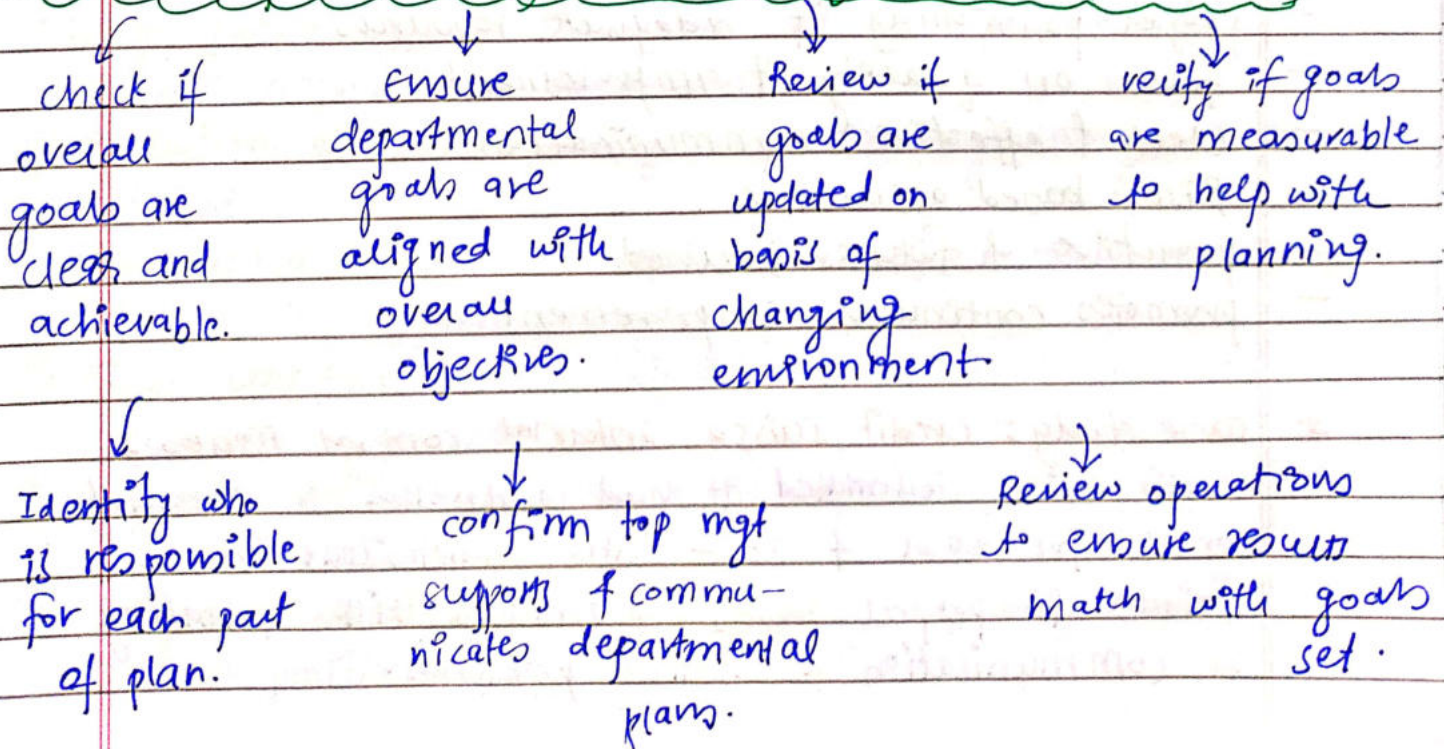 check if
overall
goals are
clear and
achievable.
Ensure
departmental
goals are
aligned with
overall
objectives.
Review if
goals are
updated on
basis of
changing
environment.
verify if goals
are measurable
to help with
planning.
Identify who
is responsible
for each part
of plan.
confirm top mgt
supports & commu-
nicates departmental
plans.
Review operations
to ensure results
match with goals
set.